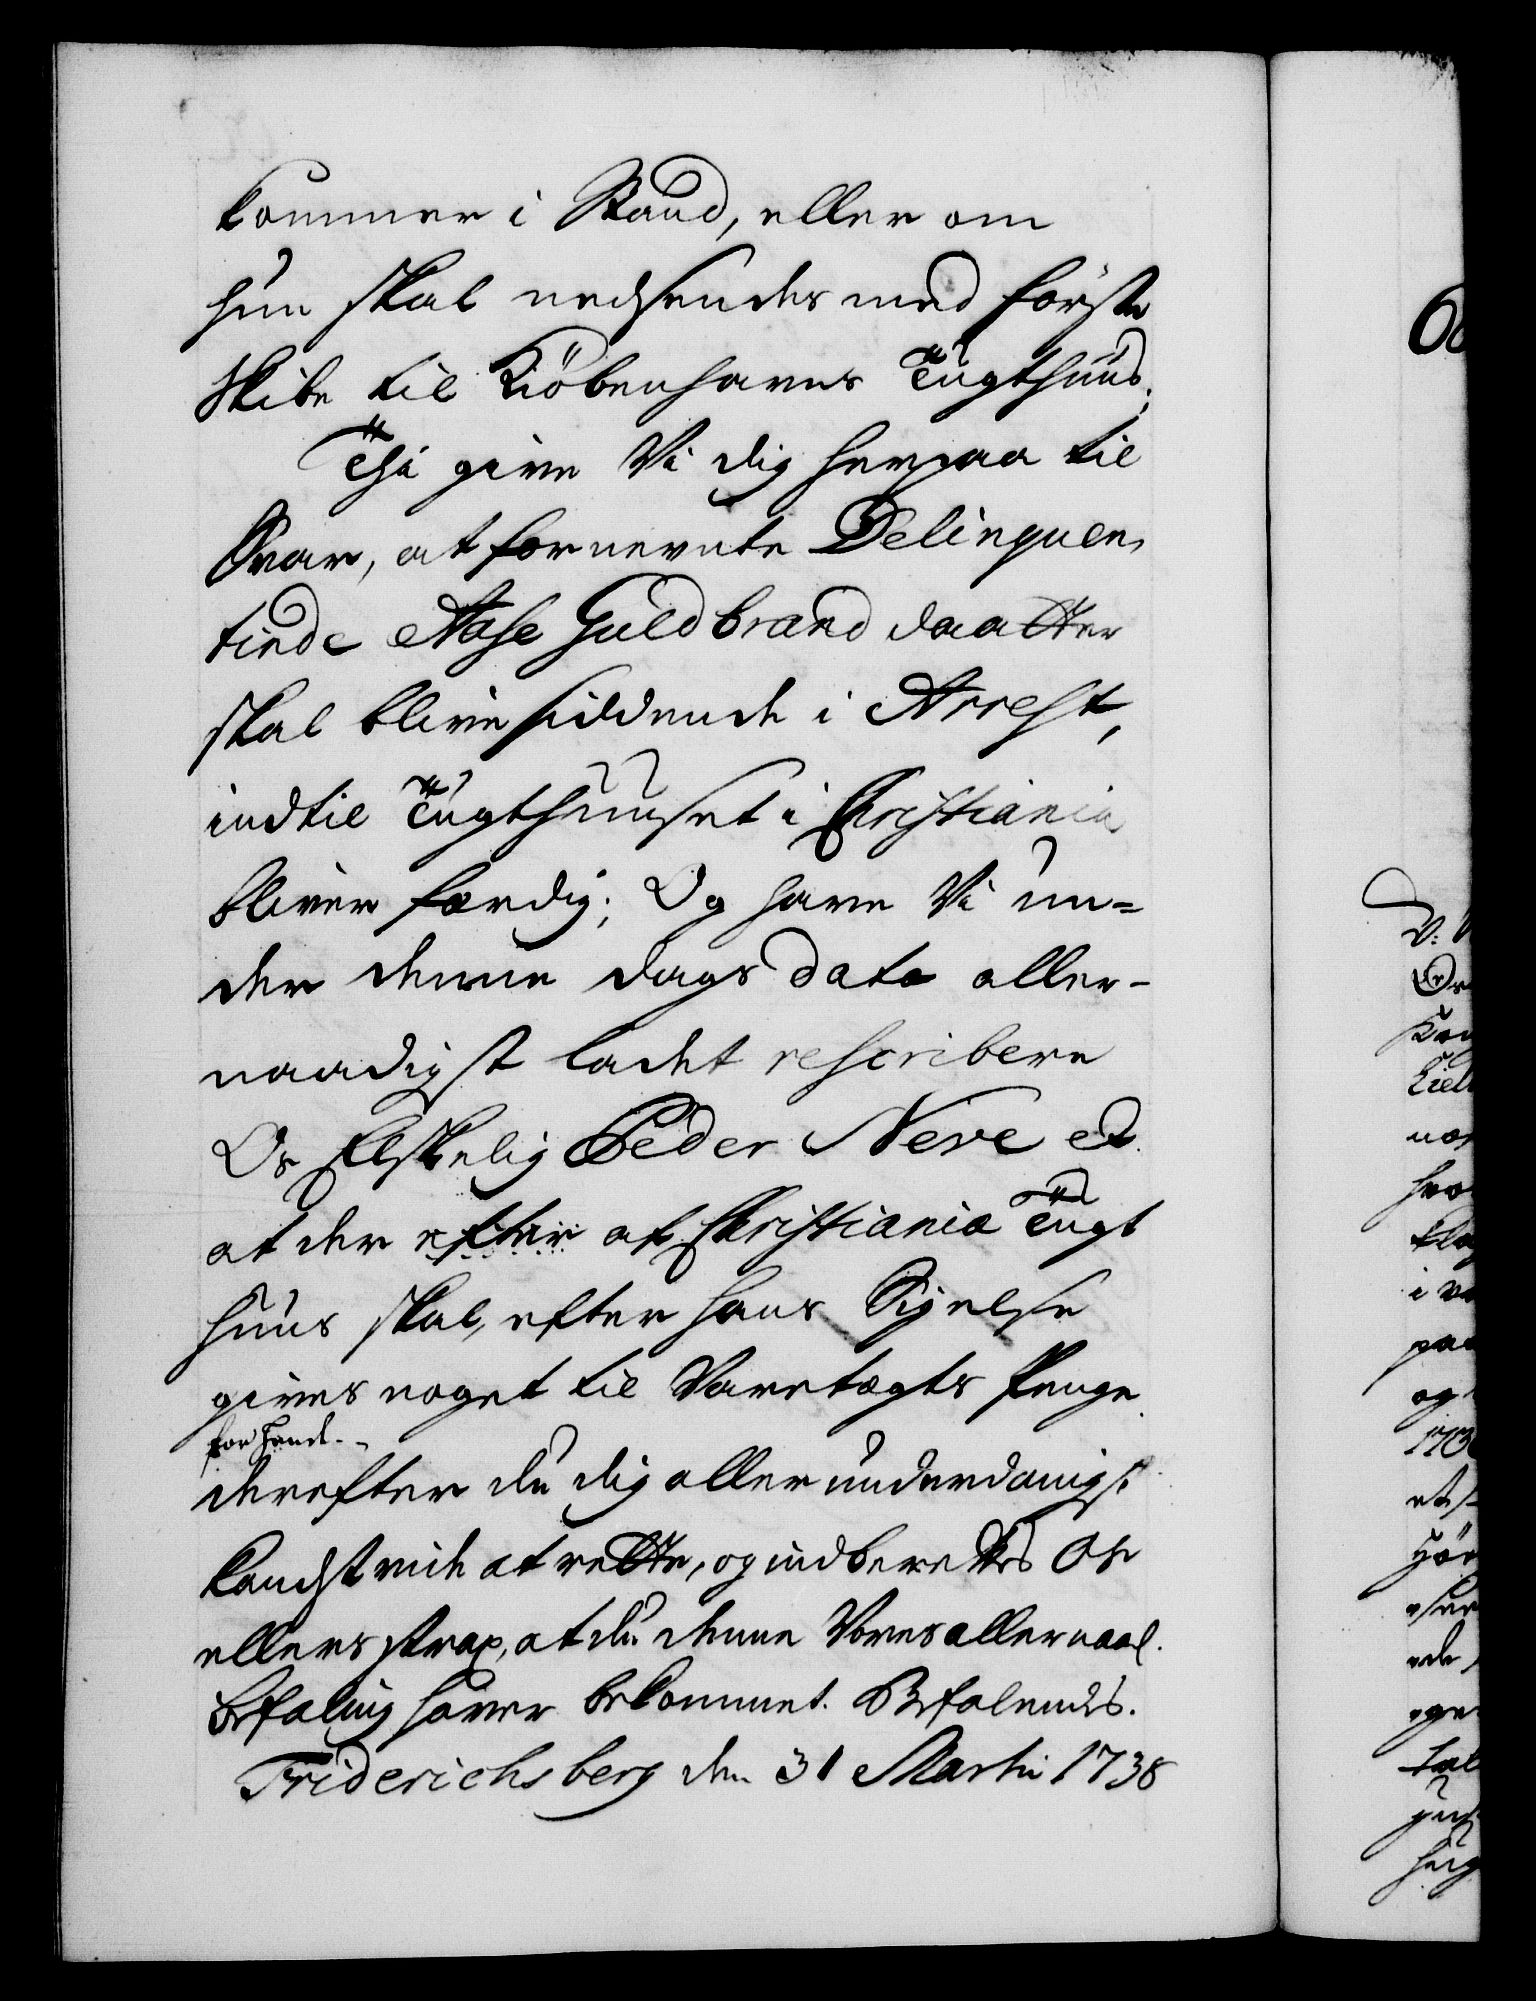 kommer i Stand, eller om
hun skal nedsendes med förste
Skibe til Kiöbenhavns Tugthuus;
Thi give Vi dig herpaa til
Svar, at fornevnte Delinquen,
tinde Aase Guldbrand daatter
skal blive siddende i Arrest,
indtil Tugthuuset i Christiania
bliver færdig; Og have Vi un=
der denne dags dato aller-
naadigst ladet rescribere
Os Elskelig Peder Neve et
at der efter af Christiania Tugt
huus skal, efter hans Sigelse
gives noget til Varetægts Penge
for hende.
derefter du dig allerunderdanigst
kandst vide at rette, og indberettes Os
ellers strax, at du denne Vores allernaad.
befaling haver bekommet. Befalendes.
Friderichsberg den 31 Martii 1738